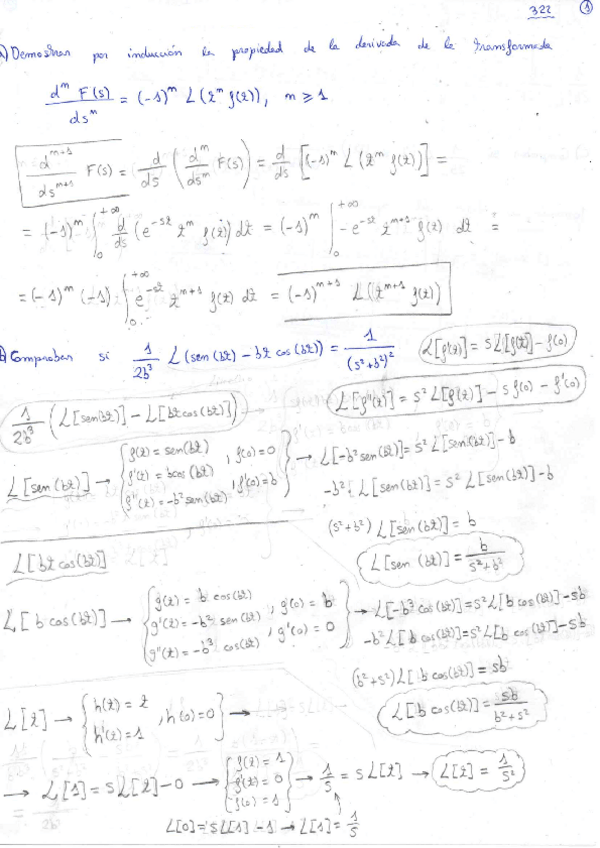 322 1
a) Demostrar por inducción la propiedad de la derivada de la transformada
d^m F(s) / ds^m = (-1)^m L(t^m f(t)), m ≥ 1
d^{m+1} / ds^{m+1} F(s) = d/ds (d^m/ds^m F(s)) = d/ds [(-1)^m L(t^m f(t))] =
= (-1)^m ∫_0^{+∞} d/ds (e^{-st} t^m f(t)) dt = (-1)^m ∫_0^{+∞} -e^{-st} t^{m+1} f(t) dt =
= (-1)^m (-1) ∫_0^{+∞} e^{-st} t^{m+1} f(t) dt = (-1)^{m+1} L(t^{m+1} f(t))
b) Comprobar si 1/2b³ L(sen(bt) - bt cos(bt)) = 1/(s²+b²)² L[f'(t)] = sL[f(t)] - f(0)
L[f''(t)] = s² L[f(t)] - s f(0) - f'(0)
1/2b³ (L[sen(bt)] - L[bt cos(bt)])
L[sen(bt)] → { f(t) = sen(bt) , f(0) = 0
f'(t) = b cos(bt) , f'(0) = b
f''(t) = -b² sen(bt) } → L[-b² sen(bt)] = s² L[sen(bt)] - b
-b² · L[sen(bt)] = s² L[sen(bt)] - b
(s²+b²) L[sen(bt)] = b
L[sen(bt)] = b/(s²+b²)
L[bt cos(bt)]
L[b cos(bt)] → { g(t) = b cos(bt) , g(0) = b
g'(t) = -b² sen(bt) , g'(0) = 0
g''(t) = -b³ cos(bt) } → L[-b³ cos(bt)] = s² L[b cos(bt)] - sb
-b² L[b cos(bt)] = s² L[b cos(bt)] - sb
(b²+s²) L[b cos(bt)] = sb
L[b cos(bt)] = sb/(b²+s²)
L[t] → { h(t) = t
h'(t) = 1 , h(0) = 0 } →
→ L[1] = sL[t] - 0 → { f(t) = 1
f'(t) = 0
f(0) = 1 } → 1/s = sL[t] → L[t] = 1/s²
L[0] = sL[1] - 1 → L[1] = 1/s